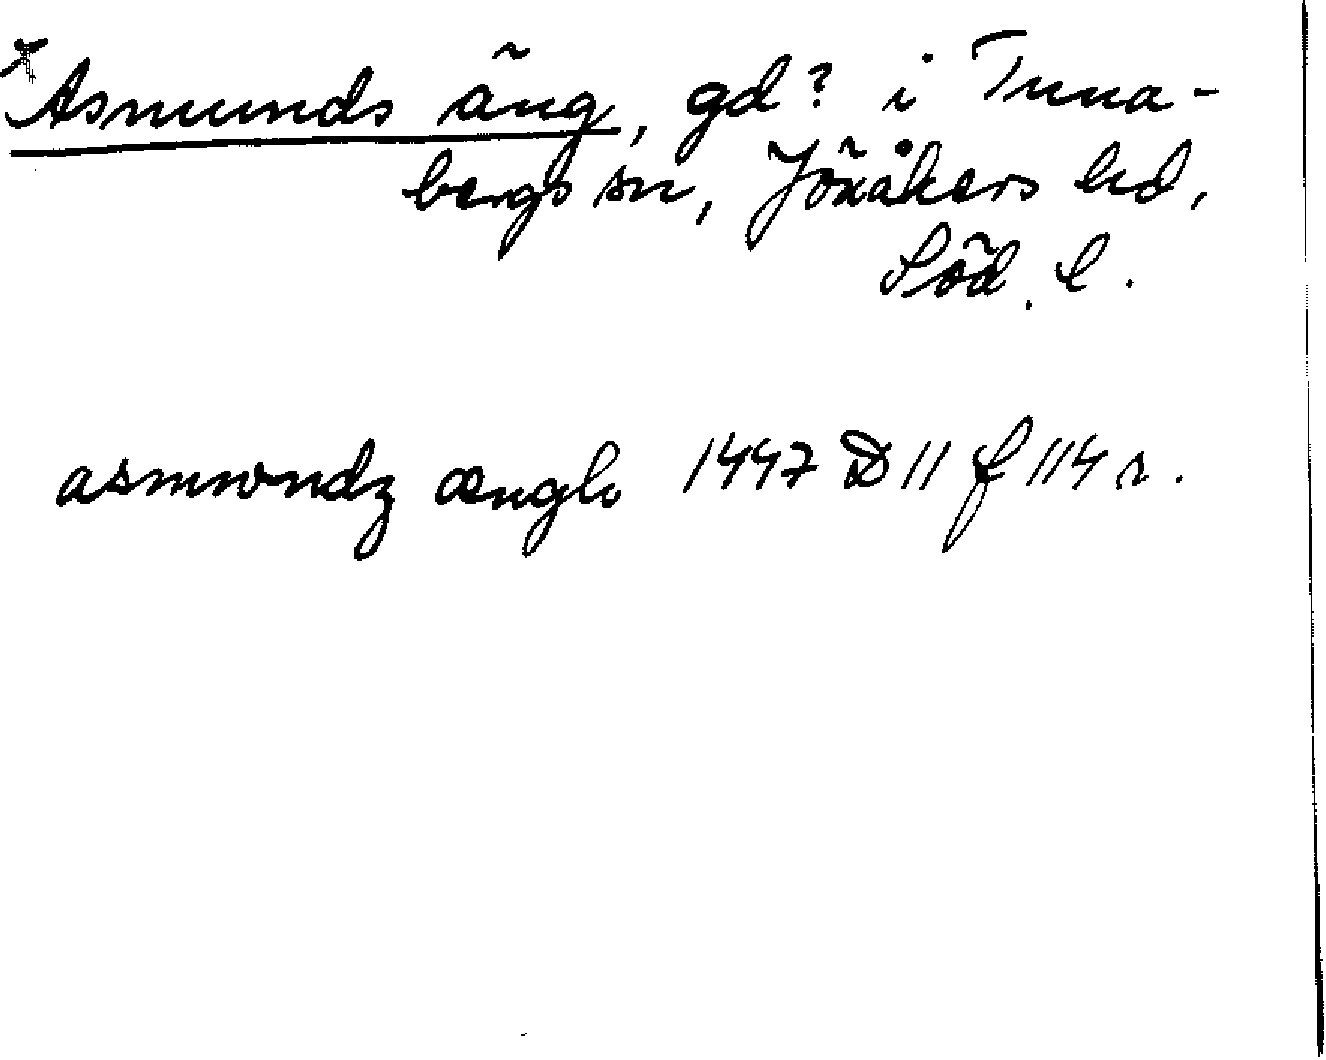 *Asmunds äng, gd? i Tuna-
bergs sn, Jönåkers hd,
Söd. l.
asmwndz ængh 1447 D 11 f 114 r.